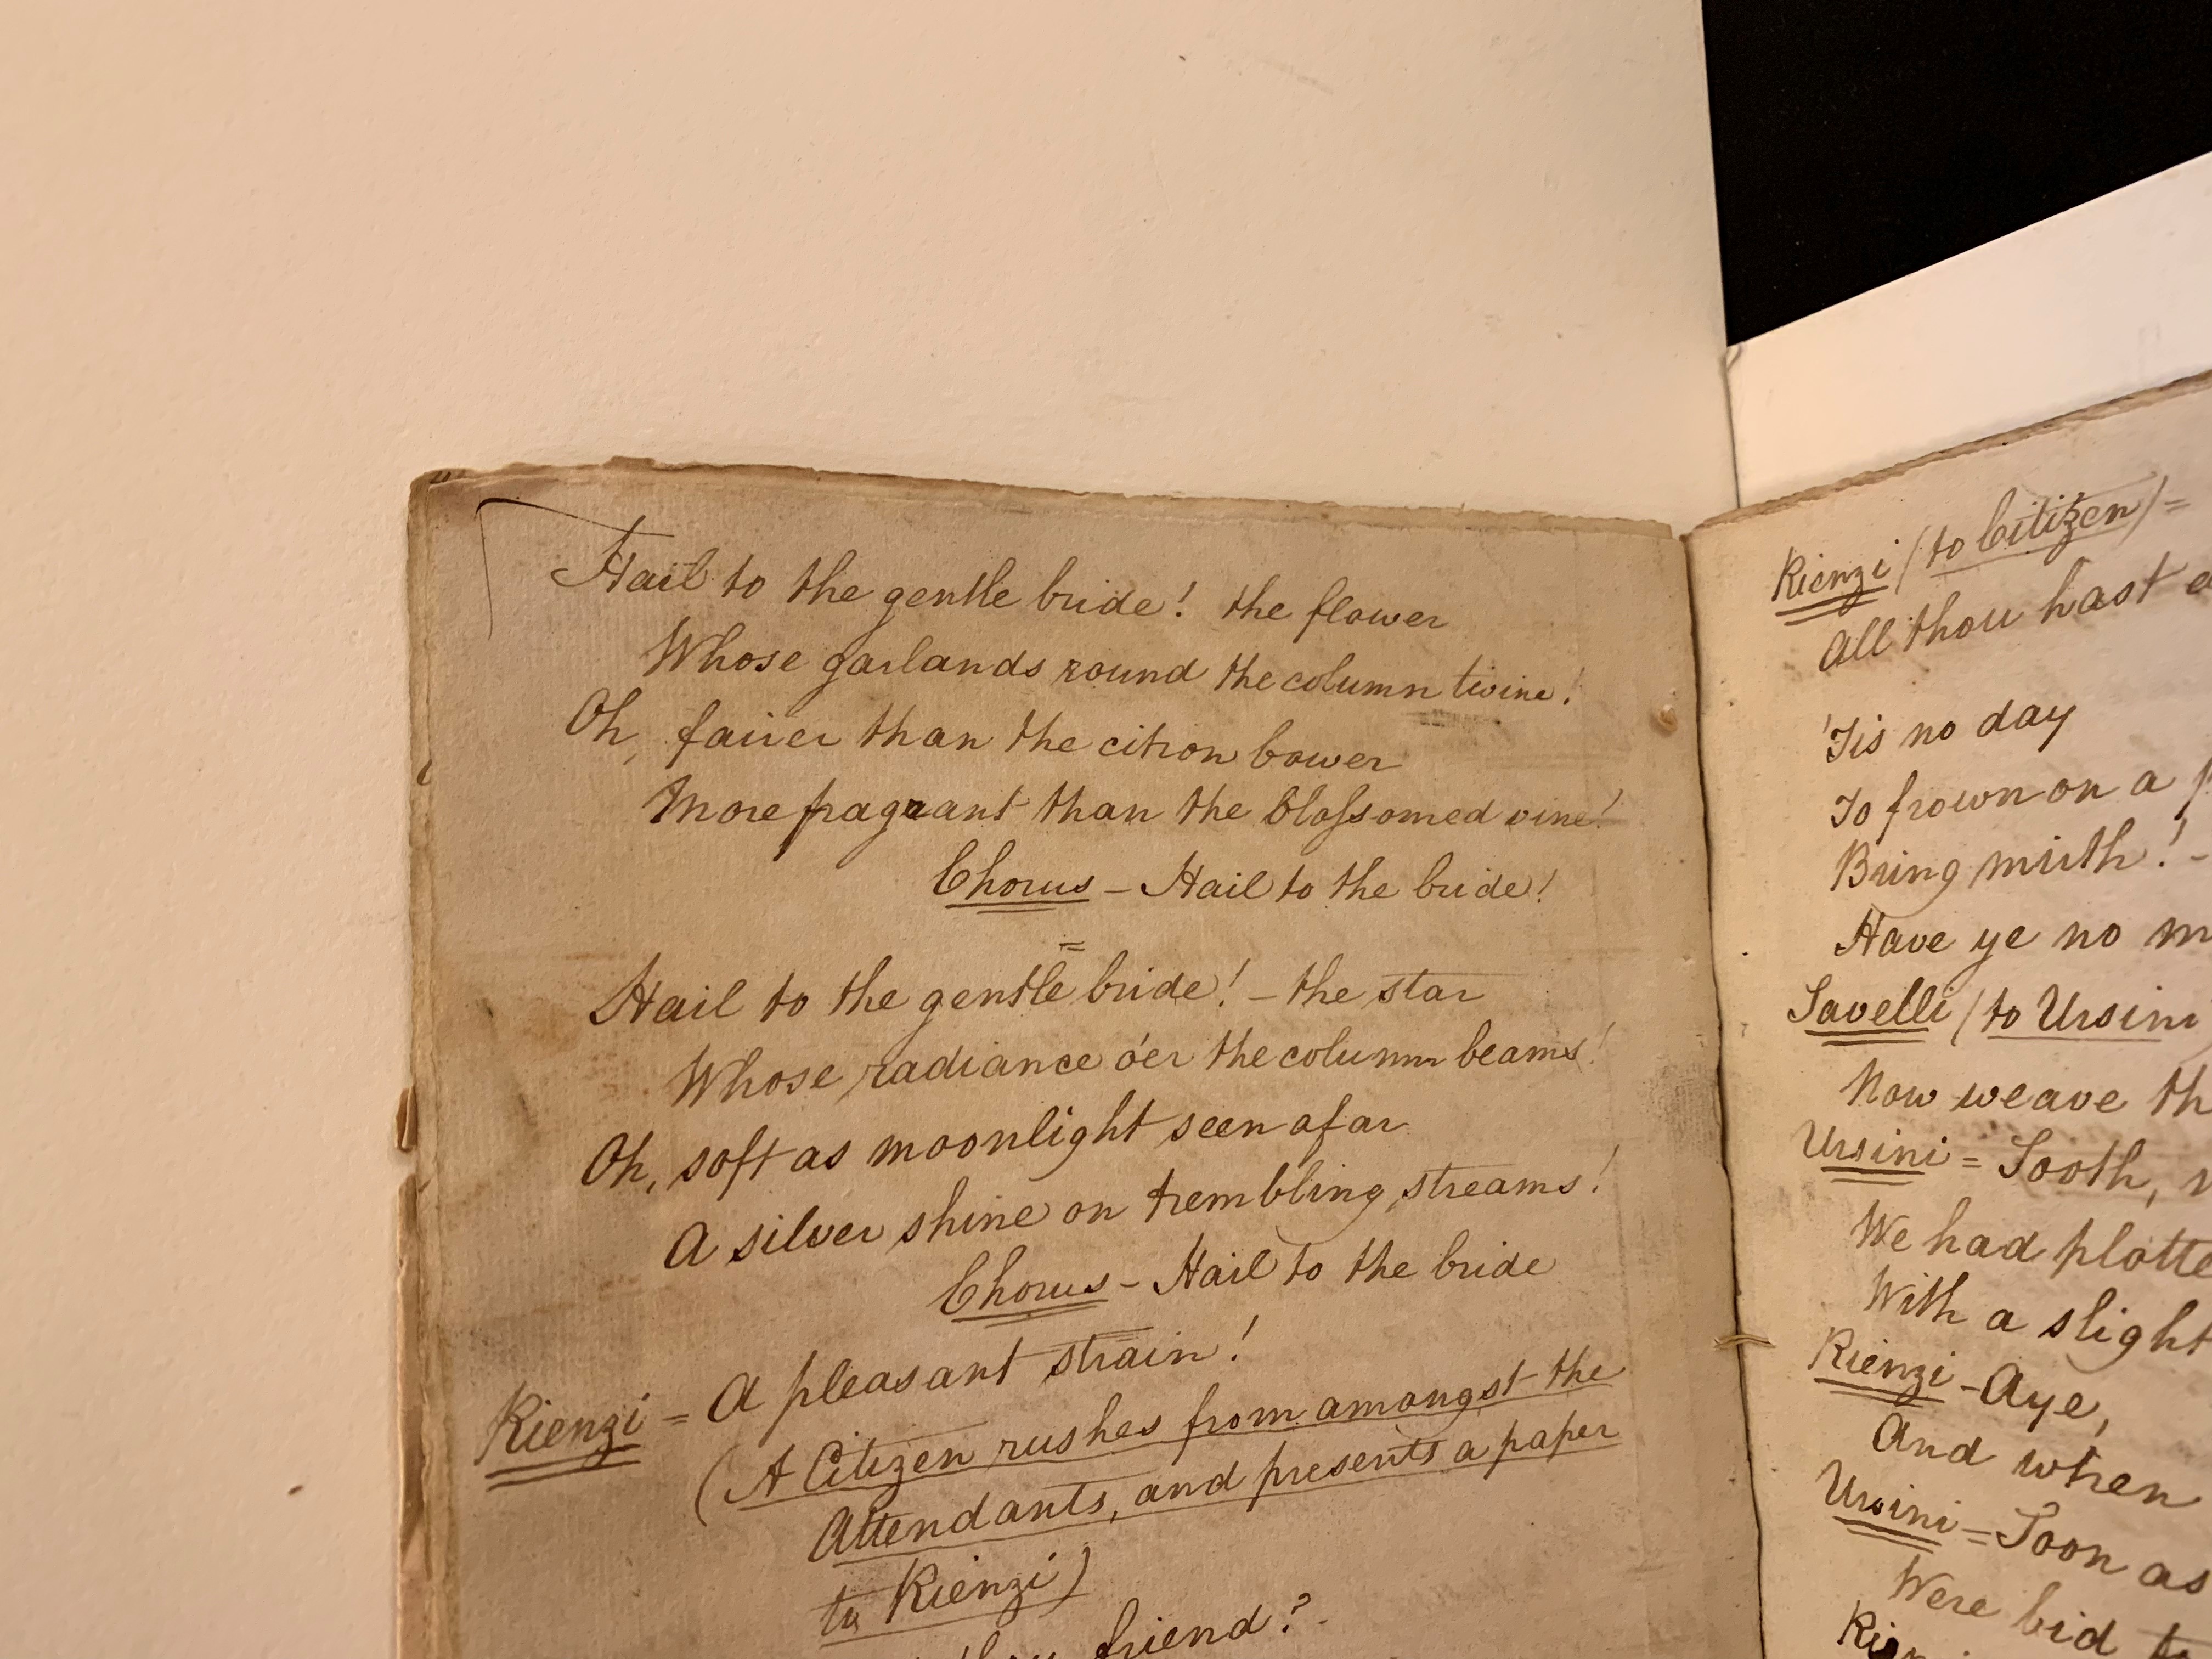 Hail to the gentle bride! the flower
Whose garlands round the column twine!
Oh, fairer than the citron bower
More fragrant than the blossomed vine!
Chorus - Hail to the bride!
=
Hail to the gentle bride! - the star
Whose radiance o'er the column beams!
Oh, soft as moonlight seen afar
A silver shine on trembling streams!
Chorus - Hail to the bride
Rienzi = A pleasant strain!
(A Citizen rushes from amongst the
Attendants, and presents a paper
to Rienzi)
friend? -
Rienzi (to Citizen) =
All thou hast
'Tis no day
To frown on a
Bring mirth! -
Have ye no
Savelli (to Ursini
Now weave
Ursini = Sooth,
We had
With a slight
Rienzi - Aye,
And when
Ursini = Soon as
Were bid